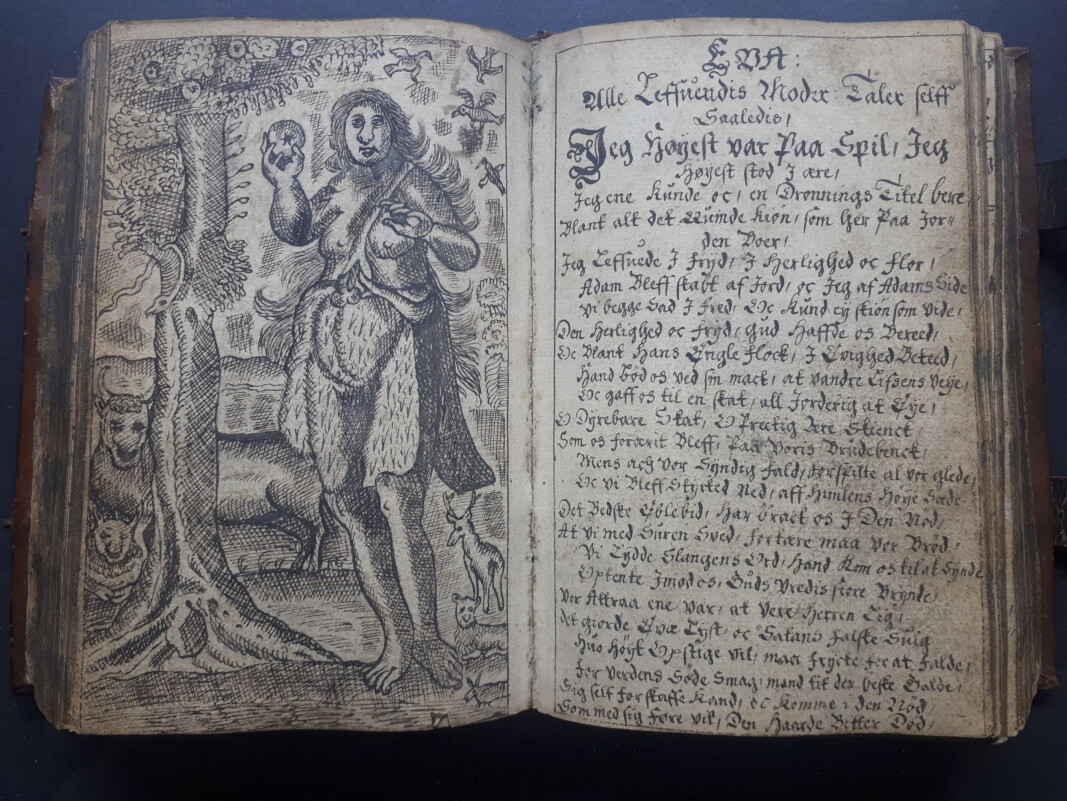 EVA:
Alle Leffuendis Moder Taler selff
Saaledis,
Jeg Høyest var Paa Spil, Jeg
Høyest stod J ære,
Jeg ene Kunde oc, en Dronnings Titel bere
Blant alt det Quinde Kiøn, som her Paa Jor-
den Boer,
Jeg Leffuede J Fryd, J Herlighed oc Flor,
Adam Bleff skabt af Jord, oc Jeg af Adams Side
Vi begge Sad J Fred, Oc Kund ey skiønsom vide,
Den Herlighed oc Fryd, Gud Haffde os Bereed,
Oc Blant Hans Engle Flock, J Evighed Beteed,
Hand bød os ved sin mact, at vandre Lifsens Veye,
Oc gaff os til en skat, all Jorderig at Eye,
O Dyrebare Skat, O Prectig Ære Skienct
Som os foræerit Bleff, Paa Voris Brudebenck,
Mens ach vor Syndig Fald, forspilte al vor glede,
Oc vi Bleff Styrted Ned, aff Himlens Høye Sæde
Det Bedste Eblebid, Har bract os J Den Nød,
At vi med Suren Sved, fortære maa vor Brød,
Vi Lydde Slangens Ord, Hand Kom os til at Synde
Optente Jmod os, Guds Vredis store Brynde,
Vor Attraa ene var, at vere Herren Lig,
det giorde Evæ Lyst, oc Satans Falske Suig
Huo Høyt Opstige vil, maa frycte for at Falde,
For Verdens Søde Smag, mand tit den beske Galde,
Sig self forskaffe Kand, oc Komme i den Nød
Som med sig føre vil, Den Haarde Bitter Død,